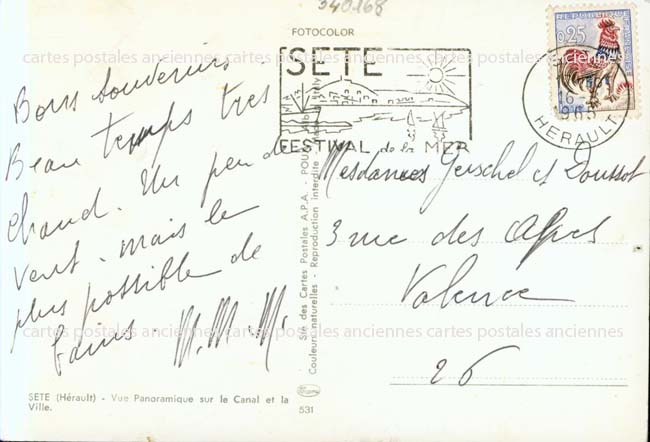 340168
FOTOCOLOR
cartes postales anciennes cartes postales anciennes cartes postales anciennes
SETE
FESTIVAL de la MER
REPUBLIQUE FRANÇAISE
0,25
16
1965
HERAULT
Bons souvenirs.
Beau temps très
chaud. Un peu de
vent. mais le
plus possible de
bains. M. M. M.
Mesdames Gerschel et Doussot
3 rue des Alpes
Valence
26
Sté des Cartes Postales A.P.A. - POUX
Couleurs naturelles - Reproduction interdite
cartes postales anciennes cartes postales anciennes cartes postales anciennes
SETE (Hérault) - Vue Panoramique sur le Canal et la
Ville.
531